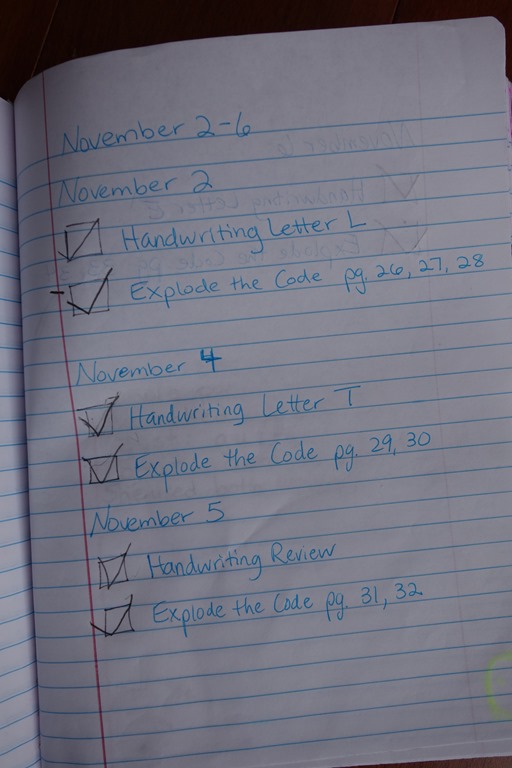 November 2-6
November 2
Handwriting Letter L
Explode the Code pg. 26, 27, 28
November 4
Handwriting Letter T
Explode the Code pg. 29, 30
November 5
Handwriting Review
Explode the Code pg. 31, 32